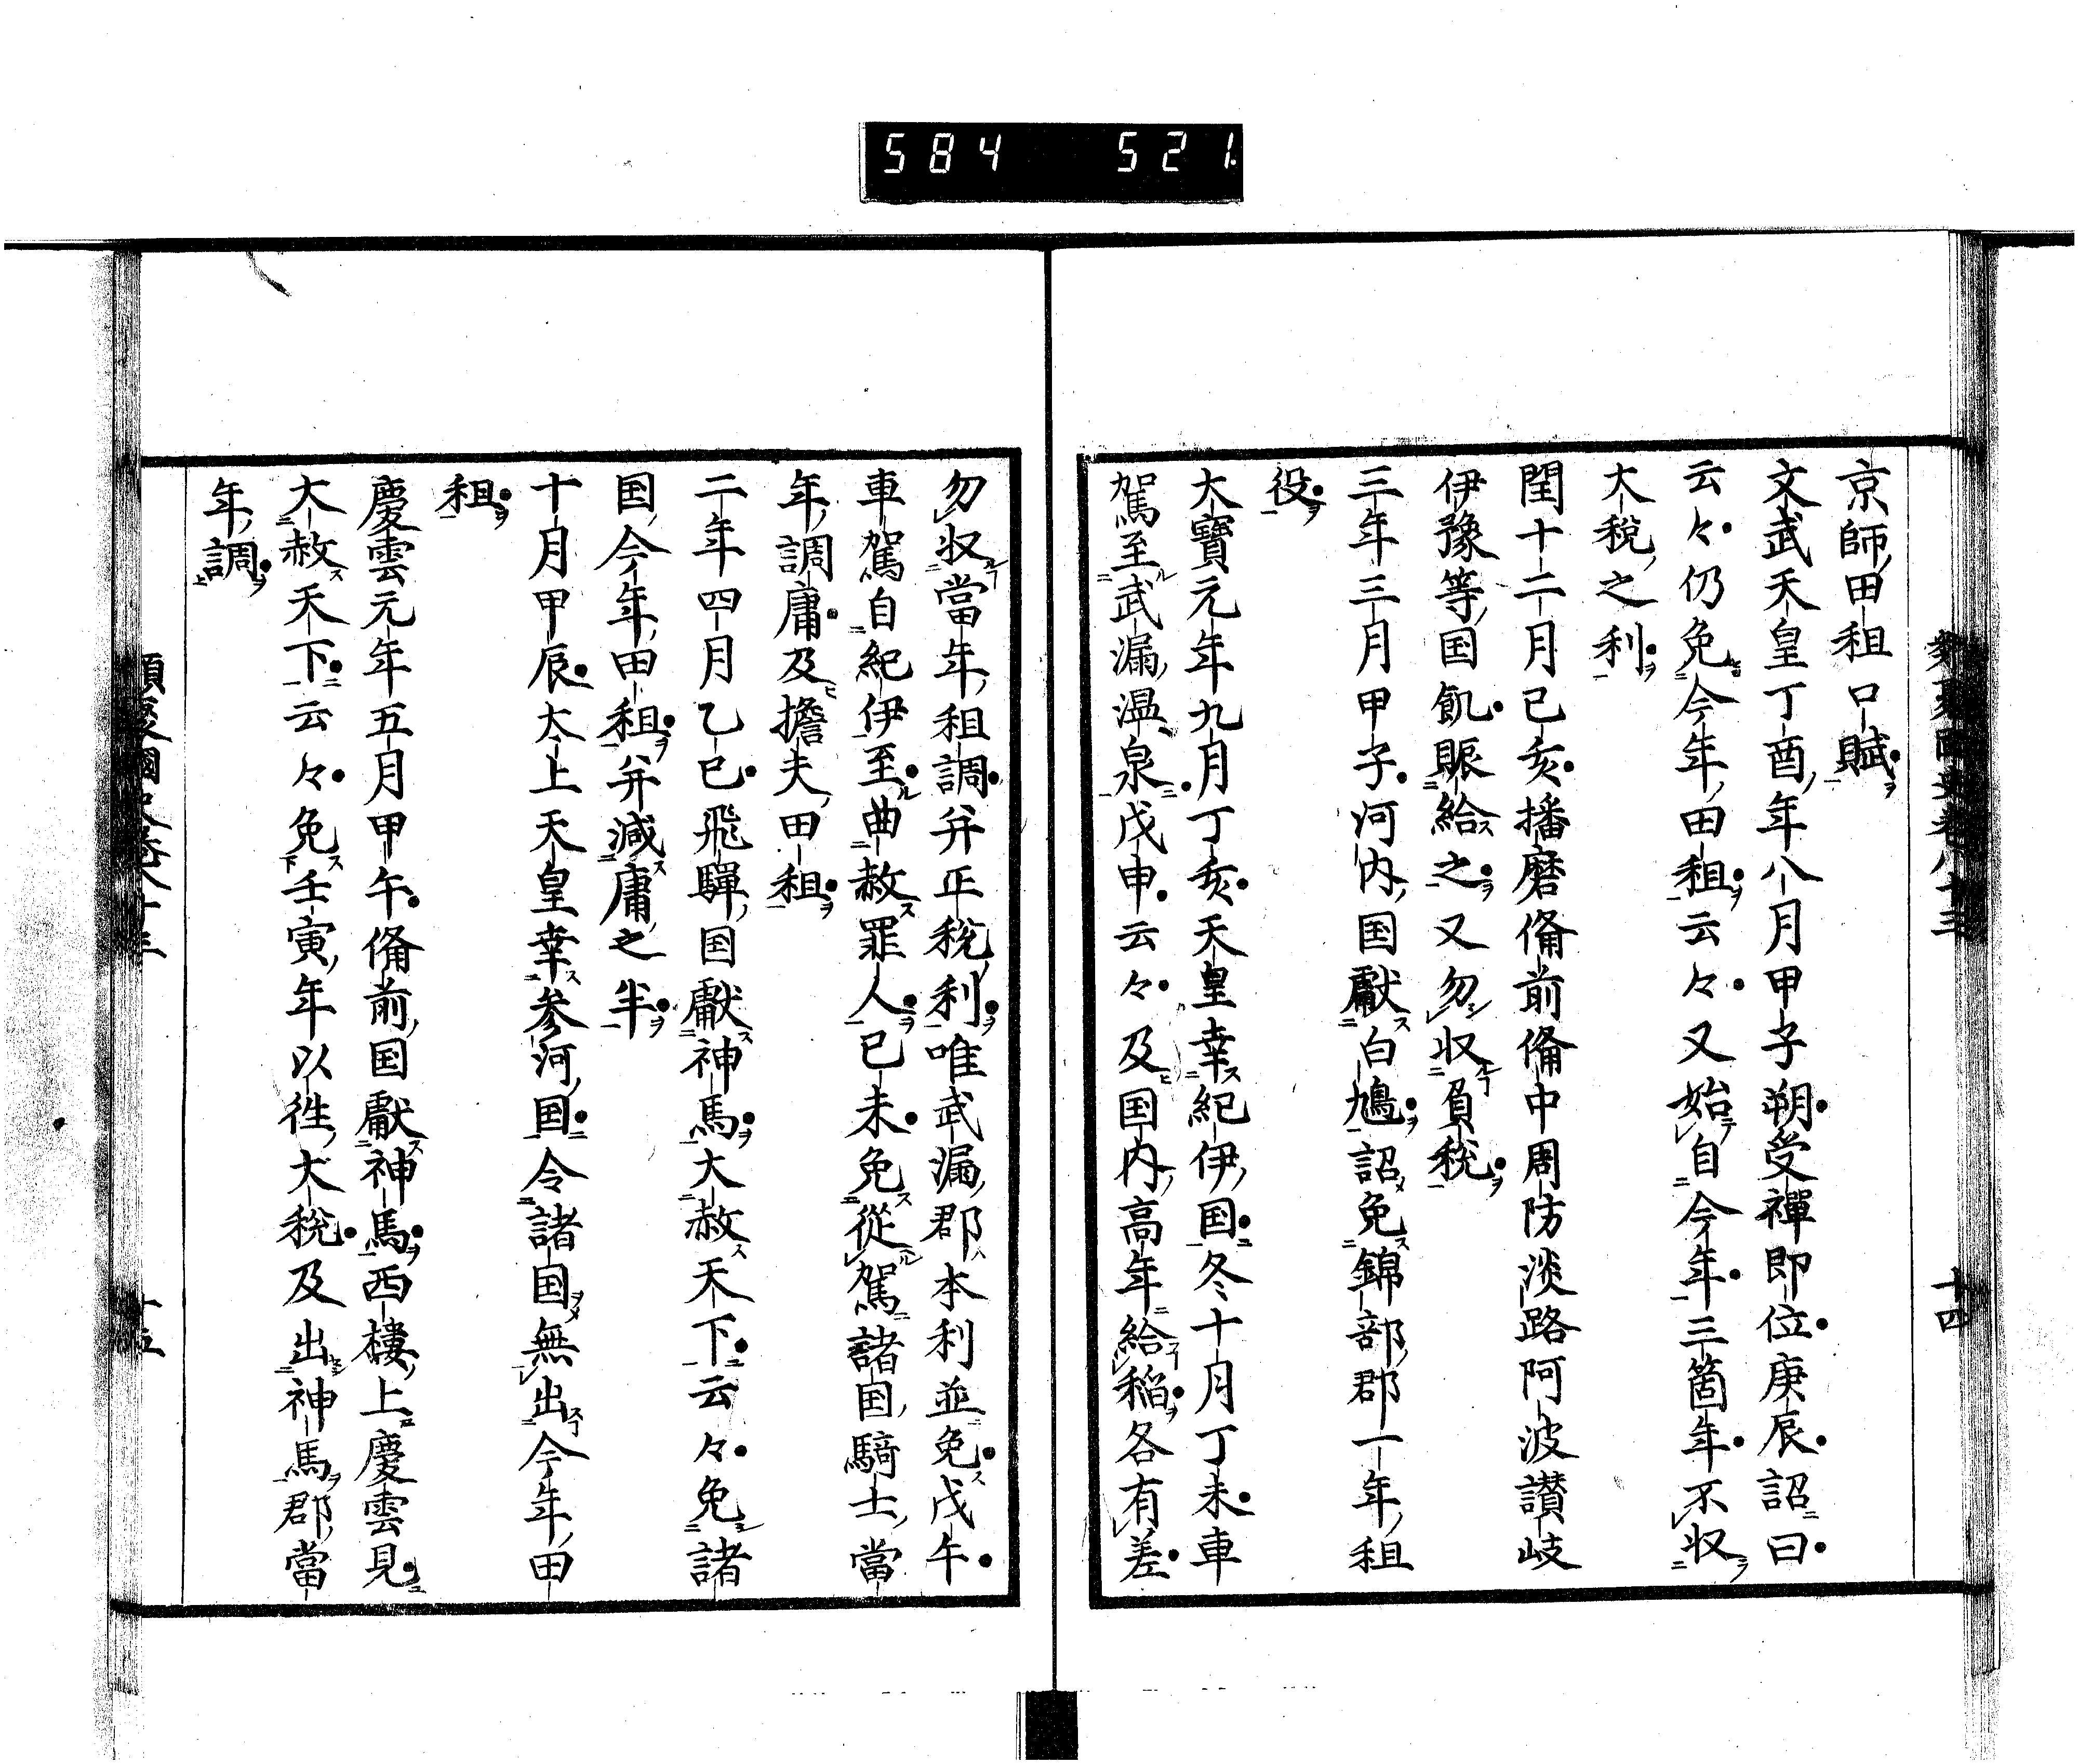 584 521
京師田租口賦
文武天皇丁酉年八月甲子朔受禪即位庚辰詔曰
云々仍免今年田租云々又始自今年三箇年不収
大税之利
閏十二月己亥播磨俻前俻中周防淡路阿波讃岐
伊豫等国飢賑給之又勿収負税
三年三月甲子河内国獻白鳩詔免錦部郡一年租
役
大寶元年九月丁亥天皇幸紀伊国冬十月丁未車
駕至武漏温泉戊申云々及国内高年給稲各有差
勿収當年租調并正税利唯武漏郡本利並免戊午
車駕自紀伊至曲赦罪人已未免従駕諸国騎士當
年調庸及擔夫田租
二年四月乙巳飛驒国獻神馬大赦天下云々免諸
国今年田租并減庸之半
十月甲辰太上天皇幸参河国令諸国無出今年田
租
慶雲元年五月甲午俻前国獻神馬西樓上慶雲見
大赦天下云々免壬寅年以徃大税及出神馬郡當
年調
十四